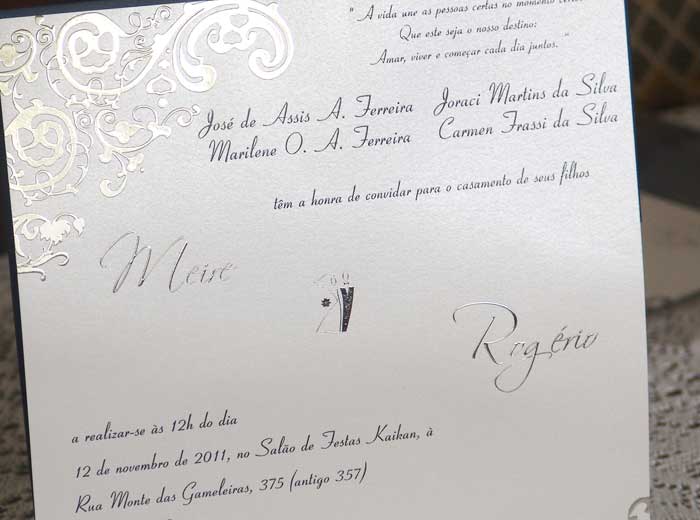 " A vida une as pessoas certas no momento certo.
Que este seja o nosso destino:
Amar, viver e começar cada dia juntos. "
José de Assis A. Ferreira Joraci Martins da Silva
Marilene O. A. Ferreira Carmen Frassi da Silva
têm a honra de convidar para o casamento de seus filhos
Meire
Rogério
a realizar-se às 12h do dia
12 de novembro de 2011, no Salão de Festas Kaikan, à
Rua Monte das Gameleiras, 375 (antigo 357)